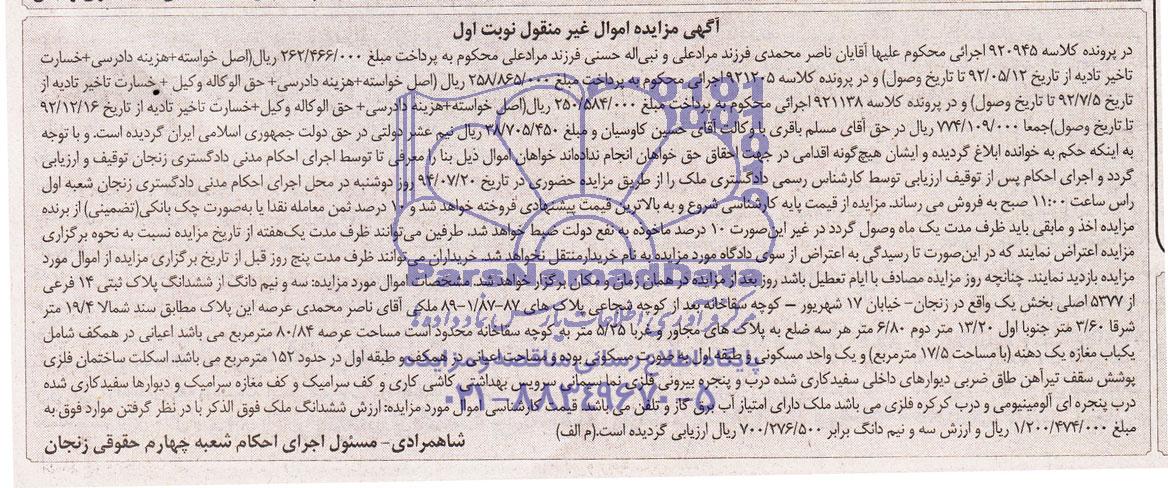 آگهی مزایده اموال غیر منقول نوبت اول
در پرونده کلاسه ۹۲۰۹۴۵ اجرائی محکوم علیها آقایان ناصر محمدی فرزند مرادعلی و نبی‌اله حسنی فرزند مرادعلی محکوم به پرداخت مبلغ ۲۶۲/۴۶۶/۰۰۰ ریال(اصل خواسته+هزینه دادرسی+خسارت
تاخیر تادیه از تاریخ ۹۲/۰۵/۱۲ تا تاریخ وصول) و در پرونده کلاسه ۹۲۱۲۰۵ اجرائی محکوم به پرداخت مبلغ ۲۵۸/۸۶۵/۰۰۰ ریال (اصل خواسته+هزینه دادرسی+ حق الوکاله وکیل + خسارت تاخیر تادیه از
تاریخ ۹۲/۷/۵ تا تاریخ وصول) و در پرونده کلاسه ۹۲۱۱۳۸ اجرائی محکوم به پرداخت مبلغ ۲۵۰/۵۸۴/۰۰۰ ریال(اصل خواسته+هزینه دادرسی+ حق الوکاله وکیل+خسارت تاخیر تادیه از تاریخ ۹۲/۱۲/۱۶
تا تاریخ وصول)جمعا ۷۷۴/۱۰۹/۰۰۰ ریال در حق آقای مسلم باقری با وکالت آقای حسین کاوسیان و مبلغ ۳۸/۷۰۵/۴۵۰ ریال نیم عشر دولتی در حق دولت جمهوری اسلامی ایران گردیده است. و با توجه
به اینکه حکم به خوانده ابلاغ گردیده و ایشان هیچ‌گونه اقدامی در جهت احقاق حق خواهان انجام نداده‌اند خواهان اموال ذیل بنا را معرفی تا توسط اجرای احکام مدنی دادگستری زنجان توقیف و ارزیابی
گردد و اجرای احکام پس از توقیف ارزیابی توسط کارشناس رسمی دادگستری ملک را از طریق مزایده حضوری در تاریخ ۹۴/۰۷/۲۰ روز دوشنبه در محل اجرای احکام مدنی دادگستری زنجان شعبه اول
راس ساعت ۱۱:۰۰ صبح به فروش می رساند. مزایده از قیمت پایه کارشناسی شروع و به بالاترین قیمت پیشنهادی فروخته خواهد شد و ۱۰ درصد ثمن معامله نقدا یا به‌صورت چک بانکی(تضمینی) از برنده
مزایده اخذ و مابقی باید ظرف مدت یک ماه وصول گردد در غیر این‌صورت ۱۰ درصد ماخوذه به نفع دولت ضبط خواهد شد. طرفین می‌توانند ظرف مدت یک‌هفته از تاریخ مزایده نسبت به نحوه برگزاری
مزایده اعتراض نمایند که در این‌صورت تا رسیدگی به اعتراض از سوی دادگاه مورد مزایده به نام خریدارمنتقل نخواهد شد. خریداران می‌توانند ظرف مدت پنج روز قبل از تاریخ برگزاری مزایده از اموال مورد
مزایده بازدید نمایند. چنانچه روز مزایده مصادف با ایام تعطیل باشد روز بعد از مزایده در همان زمان و مکان برگزار خواهد شد. مشخصات اموال مورد مزایده: سه و نیم دانگ از ششدانگ پلاک ثبتی ۱۴ فرعی
از ۵۳۷۷ اصلی بخش یک واقع در زنجان- خیابان ۱۷ شهریور – کوچه سقاخانه بعد از کوچه شجاعی پلاک های ۸۷-۱/۸۷-۸۹ ملکی آقای ناصر محمدی عرصه این پلاک مطابق سند شمالا ۱۹/۴ متر
شرقا ۳/۶۰ متر جنوبا اول ۱۳/۲۰ متر دوم ۶/۸۰ متر هر سه ضلع به پلاک های مجاور و غربا ۵/۲۵ متر به کوچه سقاخانه محدود است مساحت عرصه ۸۰/۸۴ مترمربع می باشد اعیانی در همکف شامل
یکباب مغازه یک دهنه (با مساحت ۱۷/۵ مترمربع) و یک واحد مسکونی و طبقه اول به صورت مسکونی بوده و مساحت اعیانی در همکف و طبقه اول در حدود ۱۵۲ مترمربع می باشد. اسکلت ساختمان فلزی
پوشش سقف تیرآهن طاق ضربی دیوارهای داخلی سفیدکاری شده درب و پنجره بیرونی فلزی نما سیمانی سرویس بهداشتی کاشی کاری و کف سرامیک و کف مغازه سرامیک و دیوارها سفیدکاری شده
درب پنجره ای آلومینیومی و درب کرکره فلزی می باشد ملک دارای امتیاز آب برق گاز و تلفن می باشد. قیمت کارشناسی اموال مورد مزایده: ارزش ششدانگ ملک فوق الذکر با در نظر گرفتن موارد فوق به
مبلغ ۱/۲۰۰/۴۷۴/۰۰۰ ریال و ارزش سه و نیم دانگ برابر ۷۰۰/۲۷۶/۵۰۰ ریال ارزیابی گردیده است.(م الف)
شاهمرادی- مسئول اجرای احکام شعبه چهارم حقوقی زنجان
ParsNamadData
پایگاه اطلاع رسانی مناقصه و مزایده
۰۲۱-۸۸۳۴۹۶۷۰-۵